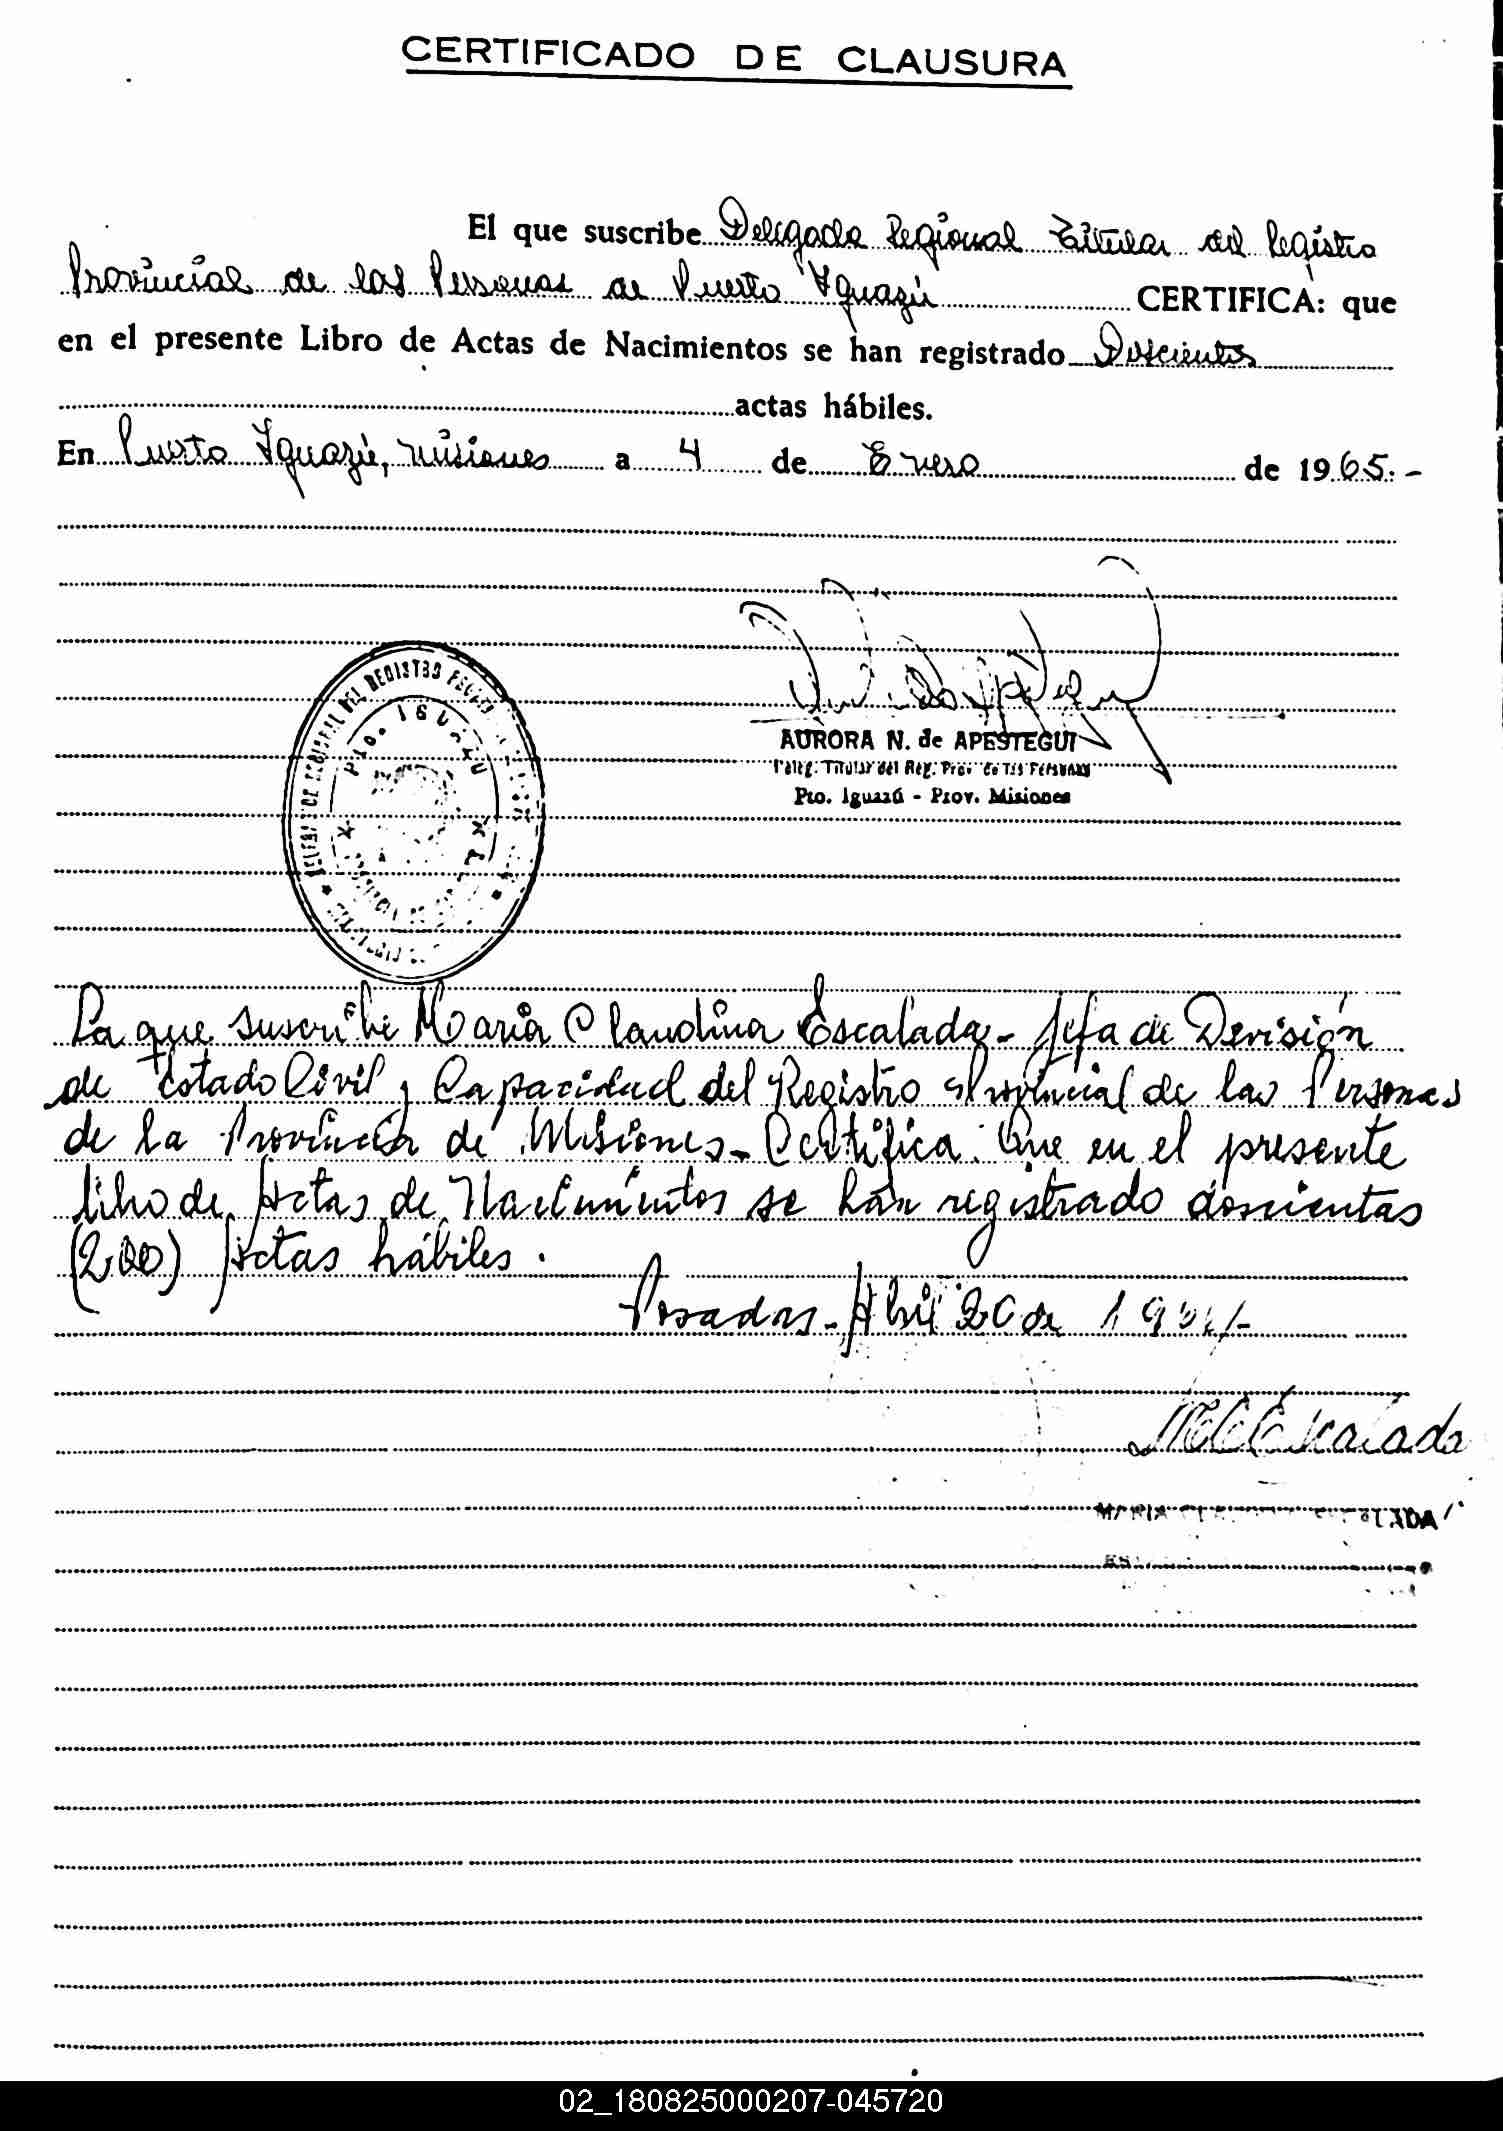 CERTIFICADO DE CLAUSURA
El que suscribe Delegada Regional Titular del Registro
Provincial de las Personas de Puerto Iguazú CERTIFICA: que
en el presente Libro de Actas de Nacimientos se han registrado Doscientos
actas hábiles.
En Puerto Iguazú, Misiones a 4 de Enero de 1965.-
AURORA N. de APESTEGUI
Deleg. Titular del Reg. Prov. de las Personas
Pto. Iguazú - Prov. Misiones
DEL REGISTRO
PTO. IGUAZU
La que suscribe María Claudina Escalada - Jefa de División
de Estado Civil y Capacidad del Registro Provincial de las Personas
de la Provincia de Misiones - Certifica: Que en el presente
libro de Actas de Nacimientos se han registrado doscientas
(200) Actas hábiles.
Posadas - Abril 20 de
M C Escalada
MARIA
02_180825000207-045720